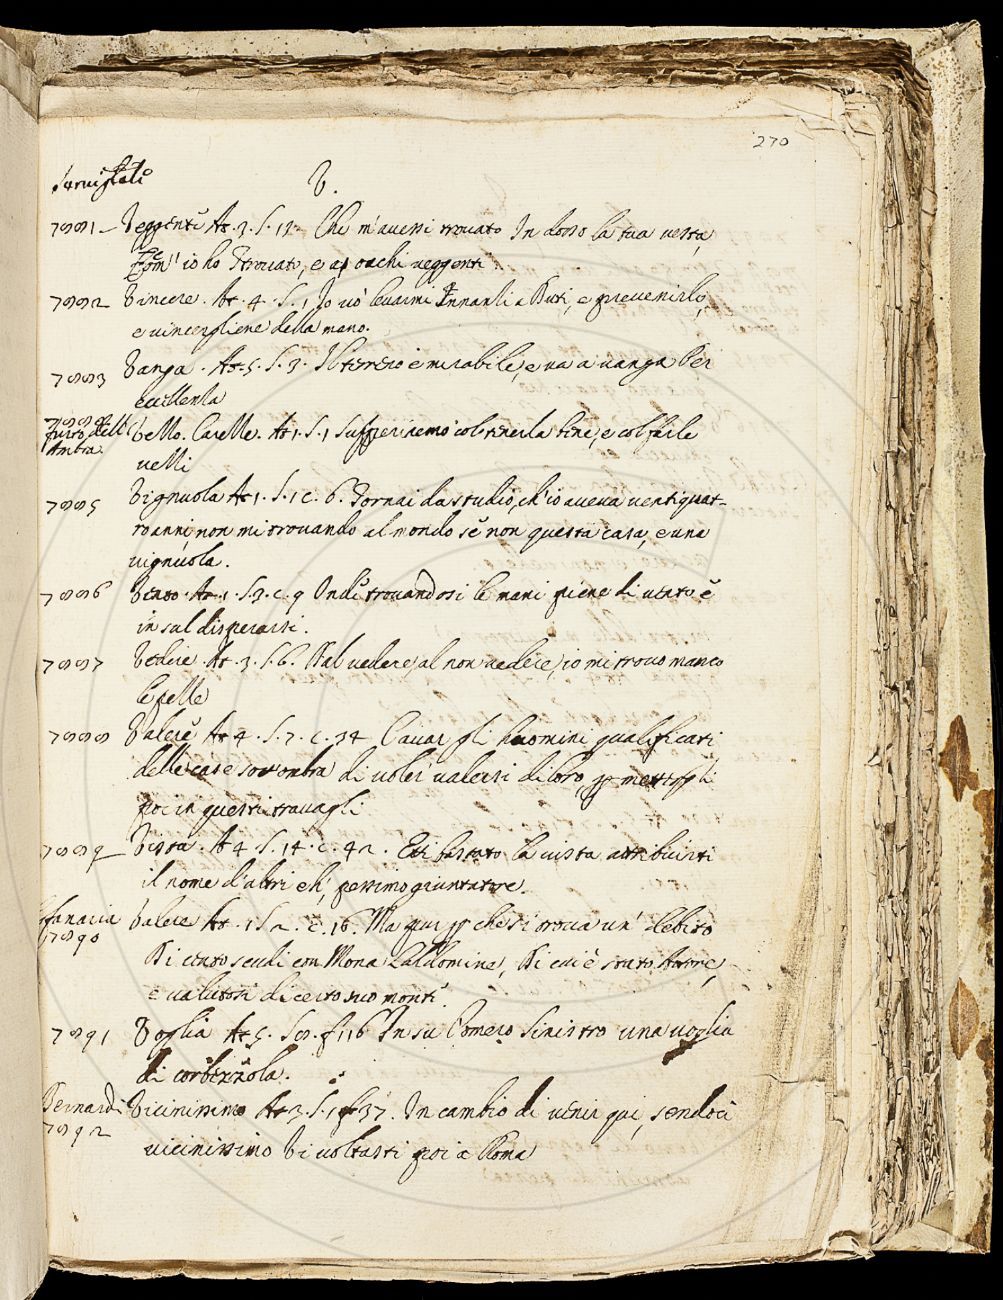 270
V.
7881 Veggente At. 3. S. 12 Che m'avessi trovato In dosso la tua vesta
Com' io ho trovato, e a occhi veggenti
7882 Vincere. At. 4. S. 1 Io vo' levarmi Innanti a Ruti, e prevenirlo,
e vincergliene della mano.
7883 Vanga. At. 5. S. 3. Il terzo è mirabile, e va a vanga Per
eccellenza
furto dell' Vello. Covelle. At 1. S. 1 col tinerla bene, e col farle
velli
7885 Vignuola At 1. S. 1 c. 6. Tornai da studio, ch'io aveva ventiquat-
tro anni non mi trovando al mondo se non questa casa, e una
vignuola.
7886 Vento. At. 1. S. 3. c. 9 Onde trovandosi le mani piene di vento è
in sul disperarsi.
7887 Vedere At. 3. S. 6. Dal vedere, al non vedere, io mi trovo manco
le pelle
7888 Valere At 4. S. 7. c. 34 Cavar gli huomini qualificati
delle case sott'ombra di voler valersi di loro, p mettergli
poi in questi travagli
7889 Vista. At 4. S. 14. c. 42. Eti bastato la vista attribuirti
il nome d'altri eh', pessimo giuntatore.
Valere At. 1 S 2. c. 16. Ma qui p che si trova un' debito
7890
Di cento scudi con Mona Laldomine, Di cui è stato Attore,
e valutosi di certo suo monte.
7891 Voglia At 5. f 116 In su l'omero sinistro una voglia
di corbezzola.
Bernardi Vicinissimo At 3. S. 1 37. In cambio di venir qui, sendoci
7892
vicinissimo Ti voltasti poi a Roma